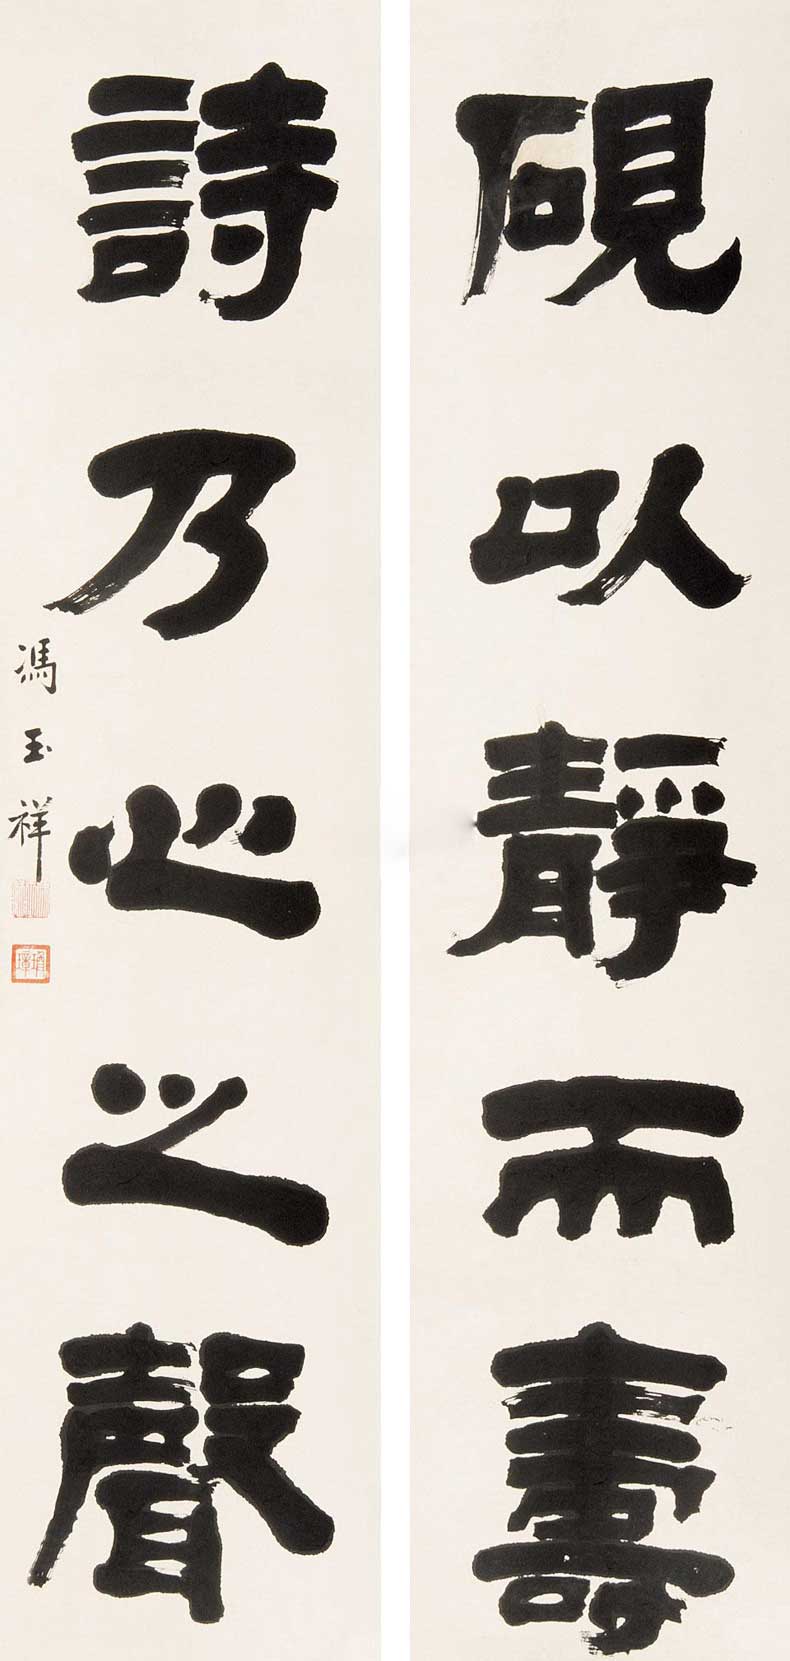 硯以靜而壽
詩乃心之聲
馮玉祥